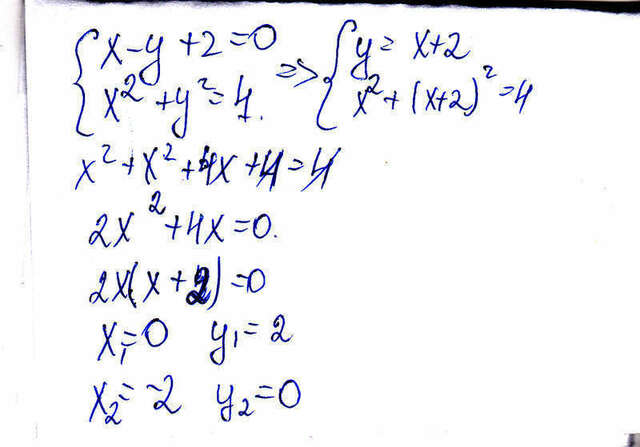 { x-y+2=0 => { y= x+2
x²+y²=4. x²+(x+2)²=4
x²+x²+4x+4=4
2x²+4x=0.
2x(x+2)=0
x₁=0 y₁=2
x₂=-2 y₂=0